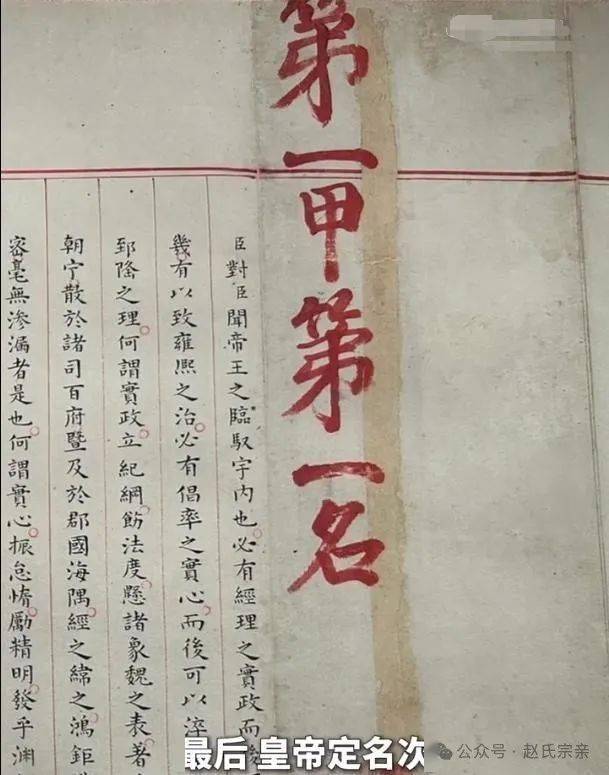 第一甲第一名
臣對臣聞帝王之臨馭宇內也必有經理之實政而後
幾有以致雍熙之治必有倡率之實心而後可以淬
郅隆之理何謂實政立紀綱飭法度懸諸象魏之表著
朝宁散於諸司百府暨及於郡國海隅經之緯之鴻鉅
密毫無滲漏者是也何謂實心振怠惰勵精明發乎淵
最后 皇帝定名次
公众号·赵氏宗亲